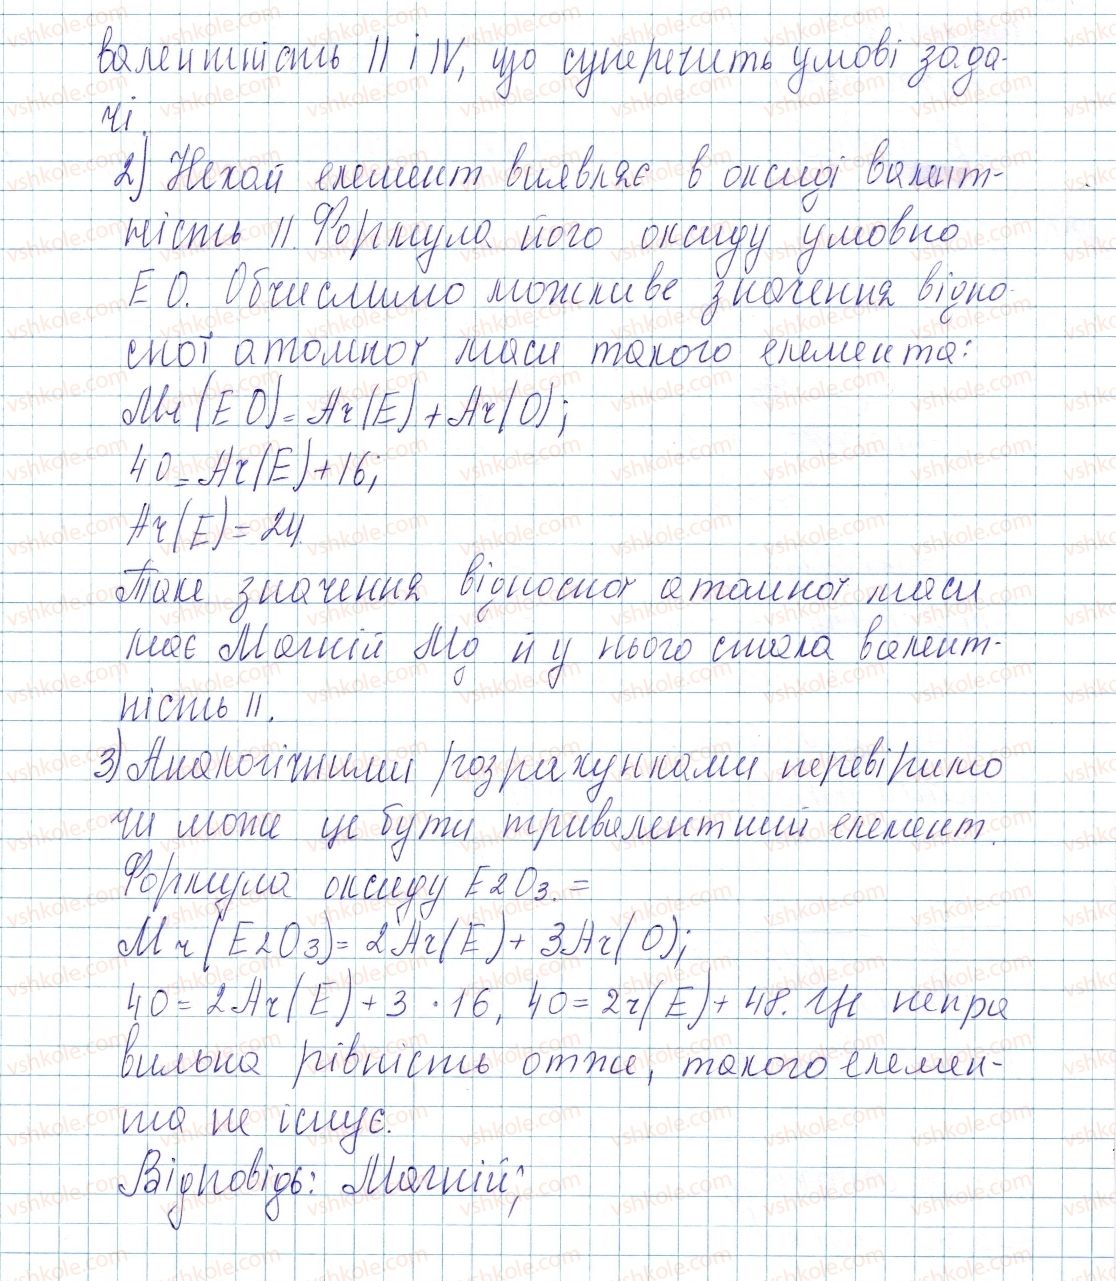 валентність II і IV, що суперечить умові зада-
чі.
2) Нехай елемент виявляє в оксиді валент-
ність II. Формула його оксиду умовно
EO. Обчислимо можливе значення відно-
сної атомної маси такого елемента:
Mr(EO)=Ar(E)+Ar(O);
40=Ar(E)+16;
Ar(E)=24.
Таке значення відносної атомної маси
має Магній Mg й у нього стала валент-
ність II.
3) Аналогічними розрахунками перевіримо
чи може це бути тривалентний елемент.
Формула оксиду E2O3.=
Mr(E2O3)=2Ar(E)+3Ar(O);
40=2Ar(E)+3·16, 40=2r(E)+48. Це непра
вильна рівність отже, такого елемен-
та не існує.
Відповідь: Магній;